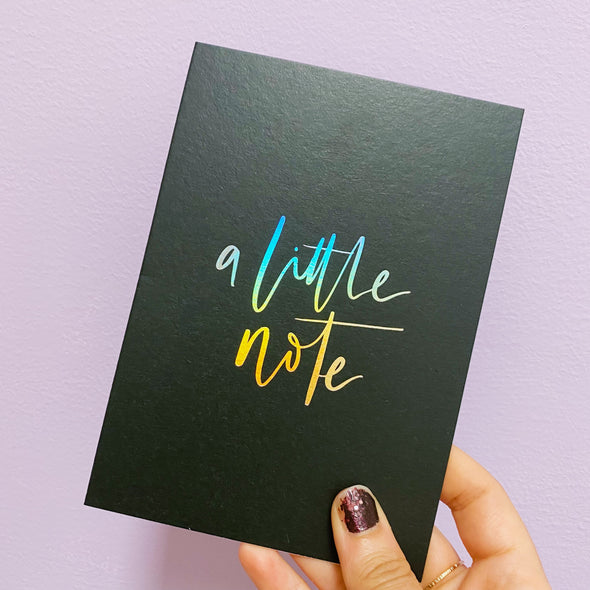 a little
note